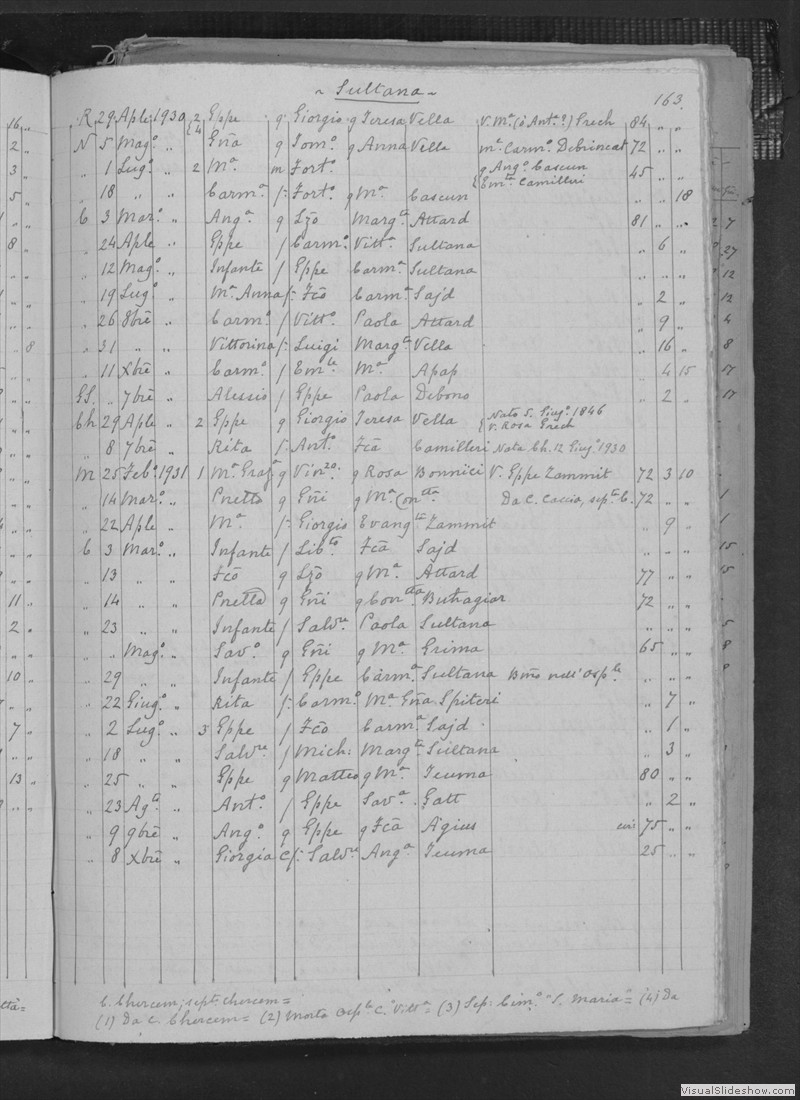 ~ Sultana ~
163.
R 29 Aple 1930 2/4 Eppe g Giorgio g Teresa Vella V. Mª (o Antª?) Grech 84 „ „
N 5 Magº „ Gña g Tomº g Anna Vella mª Carmº Debrincat 72 „ „
„ 1 Lugº „ 2 Mª m Fortº { g Angº Cascun 45 „ „
Emᵗᵃ Camilleri
„ 18 „ „ Carmª f: Fortº g Mª Cascun „ „ 18
C 3 Marº „ Angª g Lzo Margᵗᵃ Attard 81 „ „
„ 24 Aple „ Eppe f Carmº Vittª Sultana „ 6 „
„ 12 Magº „ Infante f Eppe Carmª Sultana „ „ „
„ 19 Lugº „ Mª Anna f: Fco Carmª Sajd „ 2 „
„ 26 8bre „ Carmº f Vittº Paola Attard „ 9 „
„ 31 „ „ Vittorina f: Luigi Margᵗᵃ Vella „ 16 „
„ 11 Xbre „ Carmº f Emˡᵉ Mª Apap „ 4 15
GS. „ 7bre „ Alessio f Eppe Paola Debono „ 2 „
Ch 29 Aple „ 2 Eppe g Giorgio Teresa Vella { Nato 5. Giugº 1846
V. Rosa Grech
„ 8 7bre „ Rita f. Antº Fca Camilleri Nata Ch. 12 Giugº 1930
M 25 Febº 1931 1 Mª Grazª g Vinzº: g Rosa Bonnici V. Eppe Zammit 72 3 10
„ 14 Marº „ Pnetto g Gñi g Mª Conᵗᵗᵃ Da C. Caccia, sepᵗᵃ C. 72 „ „
„ 22 Aple „ Mª f: Giorgio Evangᵗᵃ Zammit „ 9 „
C 3 Marº „ Infante f Libᵗº Fca Sajd „ „ „
„ 13 „ „ Fco g Lzo g Mª Attard 77 „ „
„ 14 „ „ Pnetto g Gñi g Conᵗᵗᵃ Buhagiar 72 „ „
„ 23 „ „ Infante f Salvʳᵉ Paola Sultana „ „ „
„ „ Magº „ Savº g Gñi g Mª Grima 65 „ „
„ 29 „ „ Infante f Eppe Carmª Sultana Bñº nell'Ospˡᵉ „ „ „
„ 22 Giugº „ Rita f: Carmº Mª Gña Spiteri „ 7 „
„ 2 Lugº „ 3 Eppe f Fco Carmª Sajd „ 1 „
„ 18 „ „ Salvʳᵉ f Mich: Margᵗᵃ Sultana „ 3 „
„ 25 „ „ Eppe g Matteo g Mª Teuma 80 „ „
„ 23 Agᵗº „ Antº f Eppe Savª Gatt „ 2 „
„ 9 9bre „ Angº g Eppe g Fca Agius 75 „ „
„ 8 Xbre „ Giorgia C f: Salvʳᵉ Angª Teuma 25 „ „
C. Chercem; septª chercem =
(1) Da C. Chercem = (2) Morto Ospˡᵉ C. Vittª = (3) Sep: Cimº "S. Maria" = (4) Da
VisualSlideshow.com